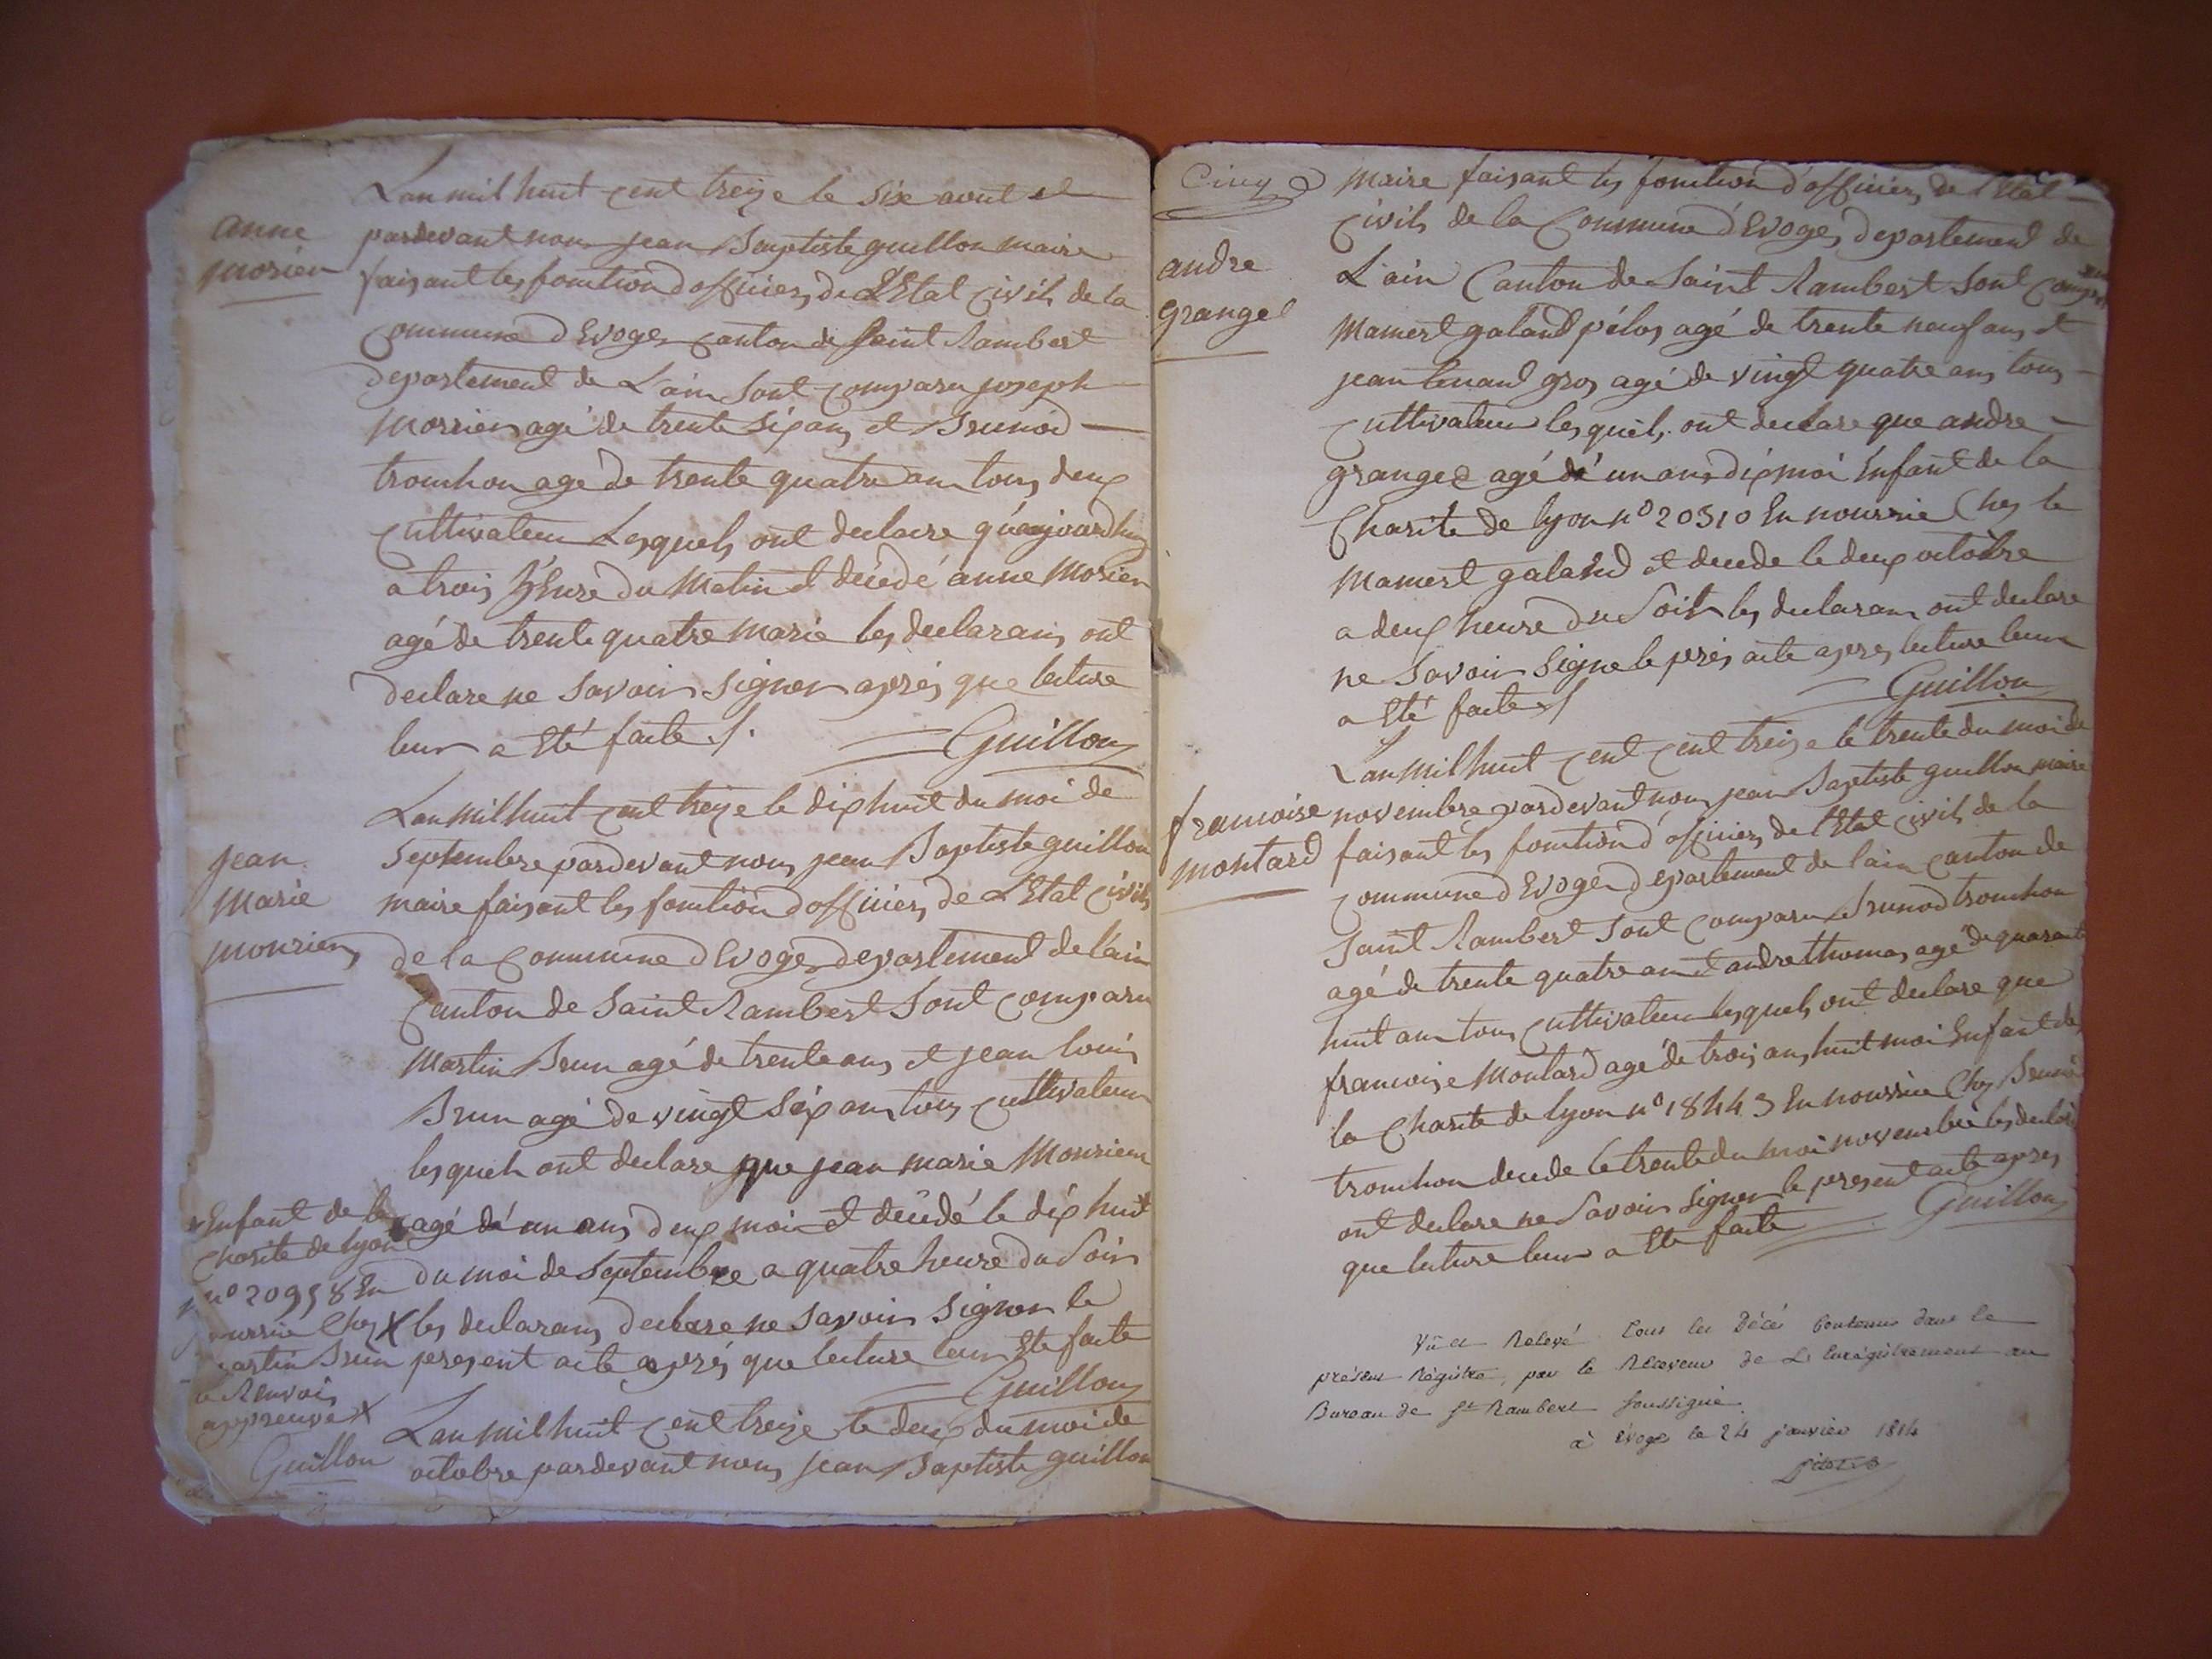 anne
morier
Lan mil huit cent treize le six aout et
pardevant nous jean Baptiste guillon maire
faisant les fonction dofficier de LEtat Civil de la
Commune d Evoges canton de saint Rambert
departement de Lain sont comparu joseph
Morrier agé de trente six ans et Brunod
tronchon agé de trente quatre an tous deux
Cultivateur Lesquels ont declare qu'aujourdhuy
a trois heure du Matin et décédé anne Morier
agé de trente quatre Marie les declarans ont
declare ne savoir signer aprés que lecture
leur a Eté faite /.
Guillon
jean
Marie
Monrien
Lan mil huit cent treize le dix huit du moi de
Septembre pardevant nous jean Baptiste guillon
maire faisant les fonction dofficier de LEtat Civil
de la Commune d Evoges departement de lain
Canton de Saint Rambert sont comparu
Martin Brun agé de trente ans et jean louis
Brun agé de vingt six an tous cultivateur
lesquels ont declare que jean marie Monrien
x agé dé un ans deux moi et décédé le dix huit
du moi de Septembre a quatre heure du Soir
x les declarans declare ne savoir signer le
present acte aprés que lecture leur Ete faite
Guillon
x Enfant de la
Charite de lyon
n° 20958 En
nourrice Chez
martin Brun
le Renvois
appreuve x
Guillon
Lan mil huit Cent treize le deux du moi de
octobre pardevant nous jean Baptiste guillon
Cinq
andre
grangé
Maire faisant les fonction d'officier de l'Etat
Civil de la Commune d'Evoges departement de
L'ain Canton de Saint Rambert sont Comparu
Mamert galand pélos agé de trente neuf ans et
jean tenand gros agé de vingt quatre ans tous
Cultivateur lesquels ont declare que andre
granger agé dé un ans dix moi Enfant de la
Charite de lyon n° 20310 En nourrice Chez le
Mamert galand et decede le deux octobre
a deux heure du Soir les declarans ont declare
ne Savoir Signe le prés acte apres lecture leur
a Eté faite /
Guillon
francoise
montard
Lan Mil huit Cent Cent treize le trente du moi de
novembre pardevant nous jean Baptiste guillon maire
faisant les fonction d'officier de l'Etat Civil de la
Commune d Evoges departement de lain canton de
Saint Rambert sont Comparu Brunod tronchon
agé de trente quatre an et andre thomas agé de quarante
huit an tous Cultivateur lesquels ont declare que
francoise Montard agé de trois ans huit moi Enfant de
la Charite de lyon n° 18443 En nourrice Chez Brunod
tronchon decede le trente du moi novembre les declar
ont declare ne Savoir Signer le present acte apres
que lecture leur a Ete faite
Guillon
Vû et Relevé tous les Décés Contenus dans le
présent Régistre, par le Receveur de L'Enregistrement au
Bureau de St Rambert soussigné.
à Evoge le 24 janvier 1814